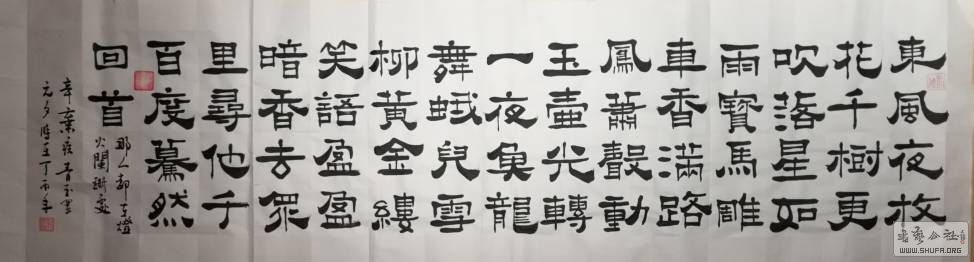 東風夜放
花千樹更
吹落星如
雨寶馬雕
車香滿路
鳳蕭聲動
玉壺光轉
一夜魚龍
舞蛾兒雪
柳黃金縷
笑語盈盈
暗香去眾
里尋他千
百度驀然
回首
那人却在燈
火闌珊處
辛棄疾青玉案
元夕時在丁酉年
书艺公社
WWW.SHUFA.ORG